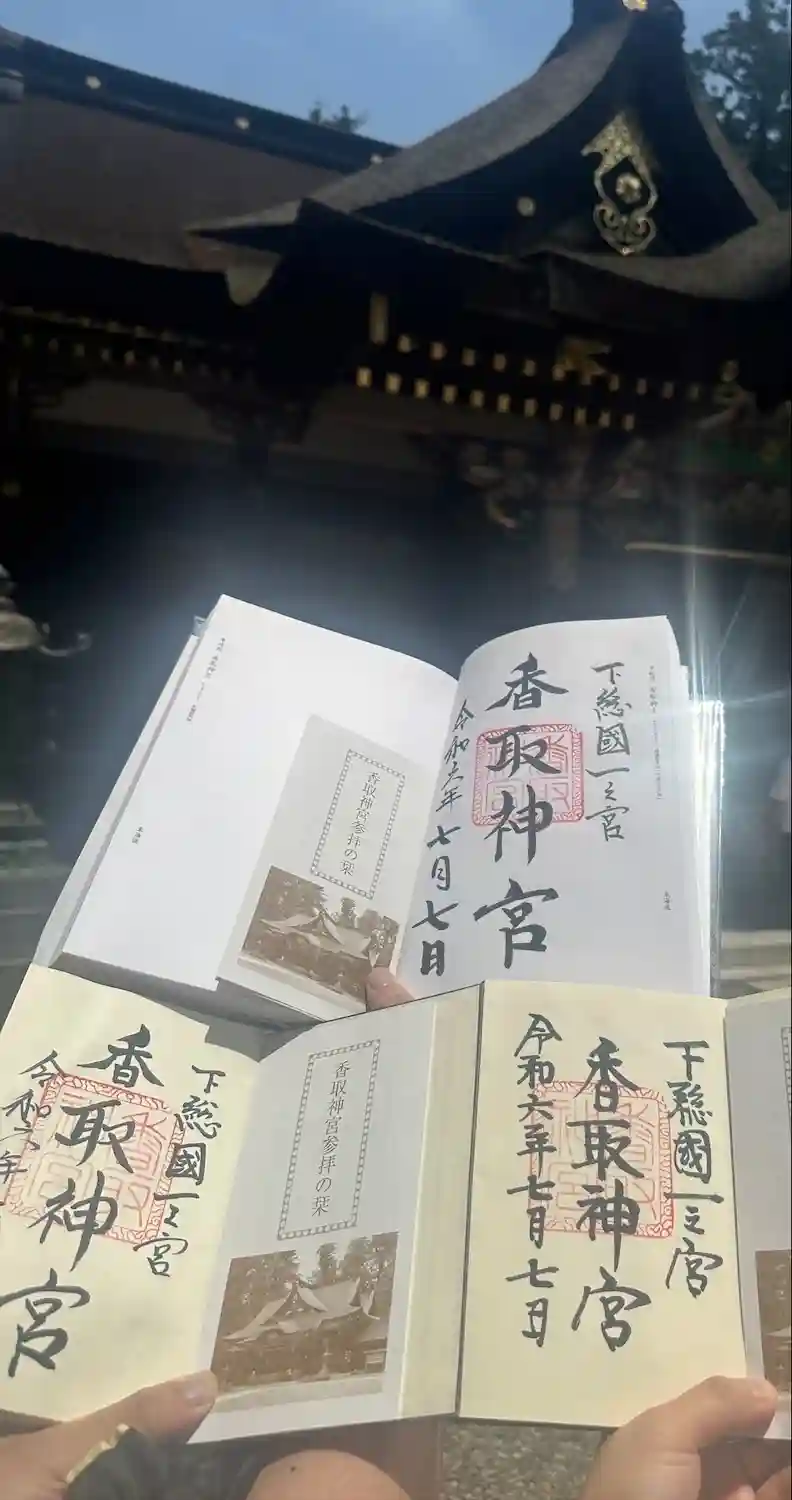 下総國一之宮
香取神宮
令和六年七月七日
香取神宮参拝の栞
下総國一之宮
香取神宮
令和六年
香取神宮参拝の栞
下総國一之宮
香取神宮
令和六年七月七日